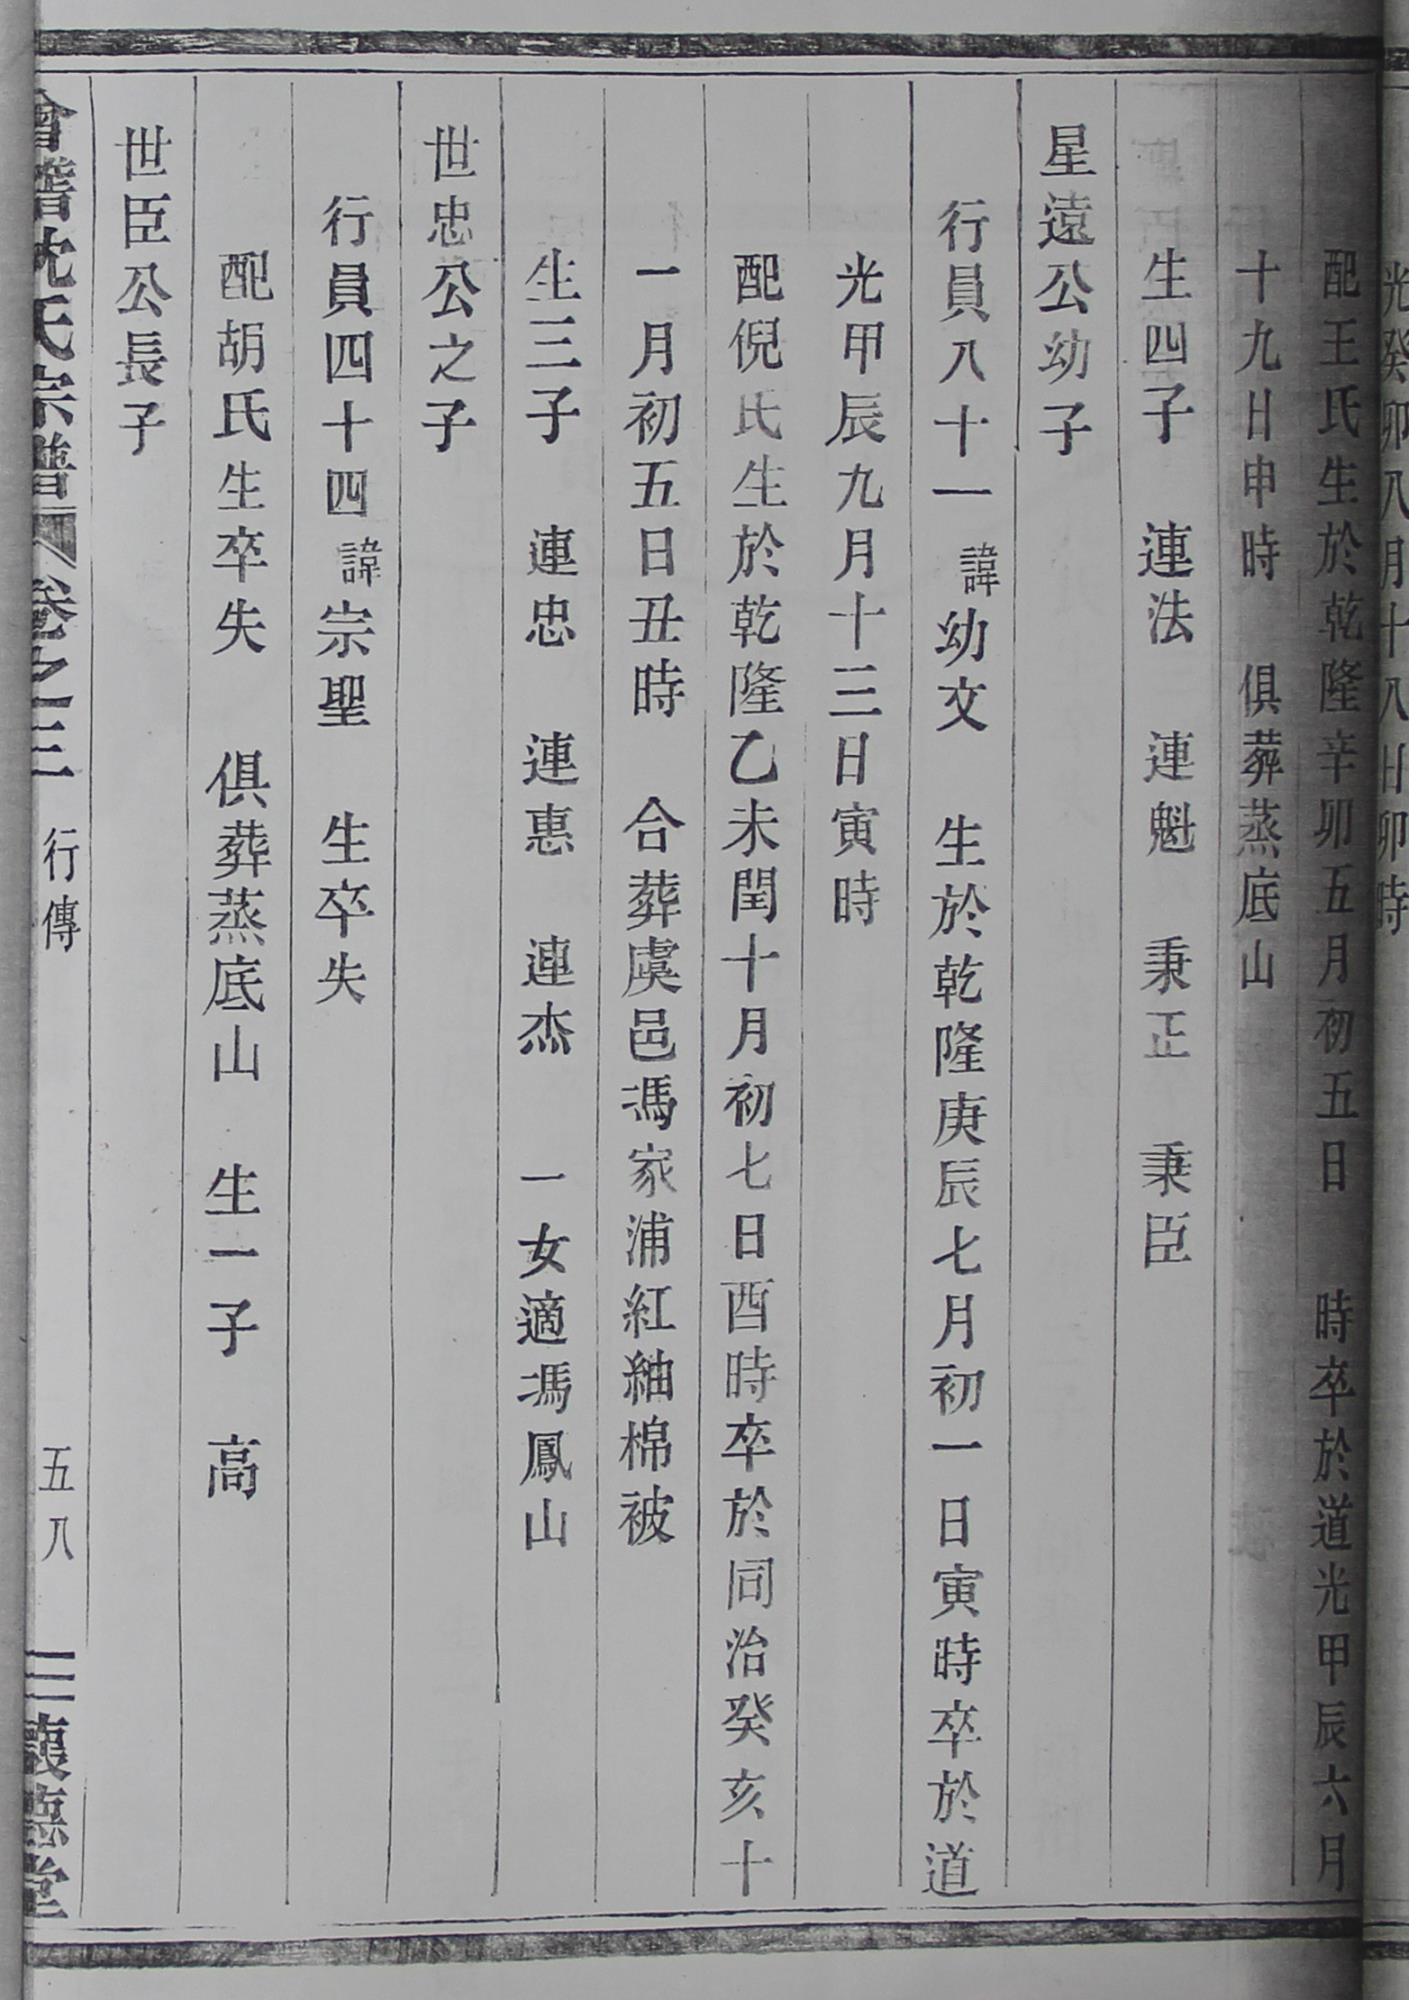 光癸卯八月十八日卯時
配王氏生於乾隆辛卯五月初五日　時卒於道光甲辰六月
十九日申時　俱葬蒸底山
生四子　連法　連魁　秉正　秉臣
星遠公幼子
行員八十一諱幼文　生於乾隆庚辰七月初一日寅時卒於道
光甲辰九月十三日寅時
配倪氏生於乾隆乙未閏十月初七日酉時卒於同治癸亥十
一月初五日丑時　合葬虞邑馮家浦紅紬棉被
生三子　連忠　連惠　連杰　一女適馮鳳山
世忠公之子
行員四十四諱宗聖　生卒失
配胡氏生卒失　俱葬蒸底山　生一子　高
世臣公長子
會稽沈氏宗譜　卷之三　行傳　五八　三義德堂